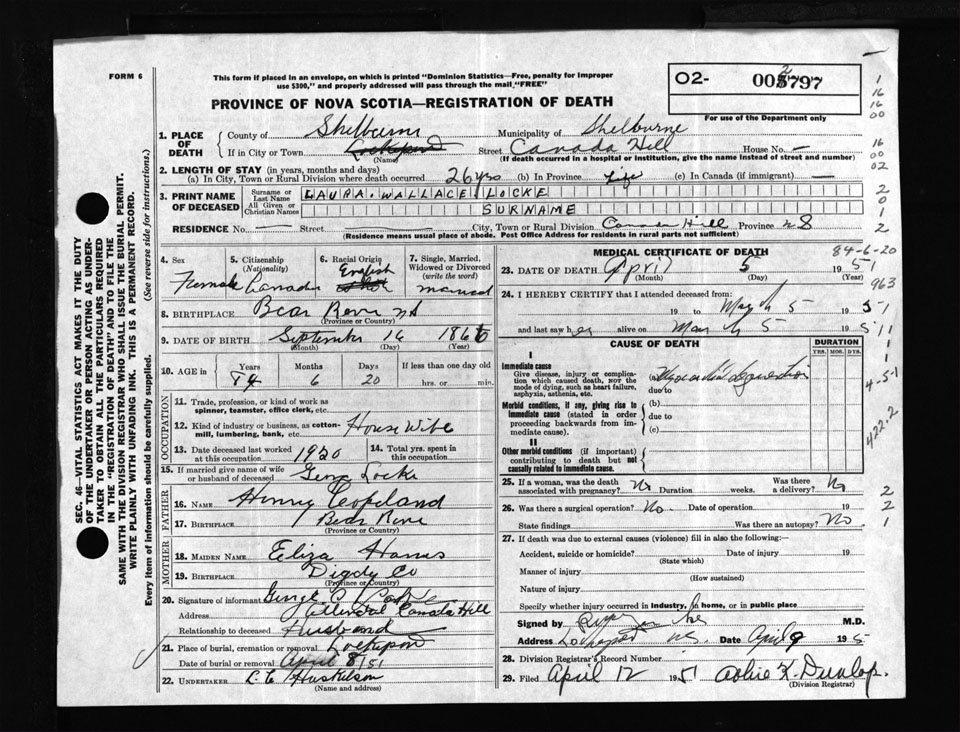 FORM 6
This form if placed in an envelope, on which is printed "Dominion Statistics—Free, penalty for improper
use $300," and properly addressed will pass through the mail "FREE"
PROVINCE OF NOVA SCOTIA—REGISTRATION OF DEATH
02- 797
For use of the Department only
1. PLACE OF DEATH
County of Municipality of Shelburne
If in City or Town Lockeport Street Canada Hill House No. —
(Name) (If death occurred in a hospital or institution, give the name instead of street and number)
2. LENGTH OF STAY (in years, months and days)
(a) In City, Town or Rural Division where death occurred 26 yrs (b) In Province Life (c) In Canada (if immigrant) —
3. PRINT NAME OF DECEASED
Surname or Last Name LAURA. WALLACE LOCKE
All Given or Christian Names SURNAME
RESIDENCE No. — Street — City, Town or Rural Division Canada Hill Province NS
(Residence means usual place of abode. Post Office Address for residents in rural parts not sufficient)
4. Sex Female
5. Citizenship (Nationality) Canadian
6. Racial Origin English
7. Single, Married, Widowed or Divorced (write the word) married
8. BIRTHPLACE Bear River NS
(Province or Country)
9. DATE OF BIRTH September 16 1866
(Month) (Day) (Year)
10. AGE in Years Months Days If less than one day old
84 6 20 hrs. or min.
OCCUPATION
11. Trade, profession, or kind of work as
spinner, teamster, office clerk, etc.
12. Kind of industry or business, as cotton-
mill, lumbering, bank, etc. House Wife
13. Date deceased last worked at this occupation 1920
14. Total yrs. spent in this occupation
15. If married give name of wife or husband of deceased Locke
FATHER
16. NAME Copeland
17. BIRTHPLACE Bear River
(Province or Country)
MOTHER
18. MAIDEN NAME Eliza Harris
19. BIRTHPLACE Digby Co
(Province or Country)
20. Signature of informant George C Locke
Address Canada Hill
Relationship to deceased Husband
21. Place of burial, cremation or removal Lockeport
Date of burial or removal April 8/51
22. UNDERTAKER
(Name and address)
MEDICAL CERTIFICATE OF DEATH
84-6-20
23. DATE OF DEATH April 5 1951
(Month) (Day) (Year)
963
24. I HEREBY CERTIFY that I attended deceased from:
19 to March 5 51
and last saw her alive on March 5 1951
CAUSE OF DEATH DURATION
YRS. MOS. DYS.
I
Immediate cause
Give disease, injury or complica-
tion which caused death, NOT the
mode of dying, such as heart failure,
asphyxia, asthenia, etc.
(a) Myocardial degeneration
due to
Morbid conditions, if any, giving rise to
immediate cause (stated in order
proceeding backwards from im-
mediate cause).
(b)
due to
(c)
II
Other morbid conditions (if important)
contributing to death but NOT
causally related to immediate cause.
4-5-1
422.2
25. If a woman, was the death associated with pregnancy? No Duration weeks. Was there a delivery? No
26. Was there a surgical operation? No. Date of operation 19
State findings Was there an autopsy? No.
27. If death was due to external causes (violence) fill in also the following:—
Accident, suicide or homicide? Date of injury 19
(State which)
Manner of injury
(How sustained)
Nature of injury
Specify whether injury occurred in industry, in home, or in public place
Signed by M.D.
Address Lockeport NS. Date April 9 195
28. Division Registrar's Record Number
29. Filed April 12 1951 K. Dunlop.
(Division Registrar)
SEC. 46—VITAL STATISTICS ACT MAKES IT THE DUTY
OF THE UNDERTAKER OR PERSON ACTING AS UNDER-
TAKER TO OBTAIN ALL THE PARTICULARS REQUIRED
IN THE "REGISTRATION OF DEATH" AND TO FILE THE
SAME WITH THE DIVISION REGISTRAR WHO SHALL ISSUE THE BURIAL PERMIT.
WRITE PLAINLY WITH UNFADING INK. THIS IS A PERMANENT RECORD.
Every item of information should be carefully supplied. (See reverse side for instructions.)
1
16
16
00
16
00
02
2
0
1
2
2
2
1